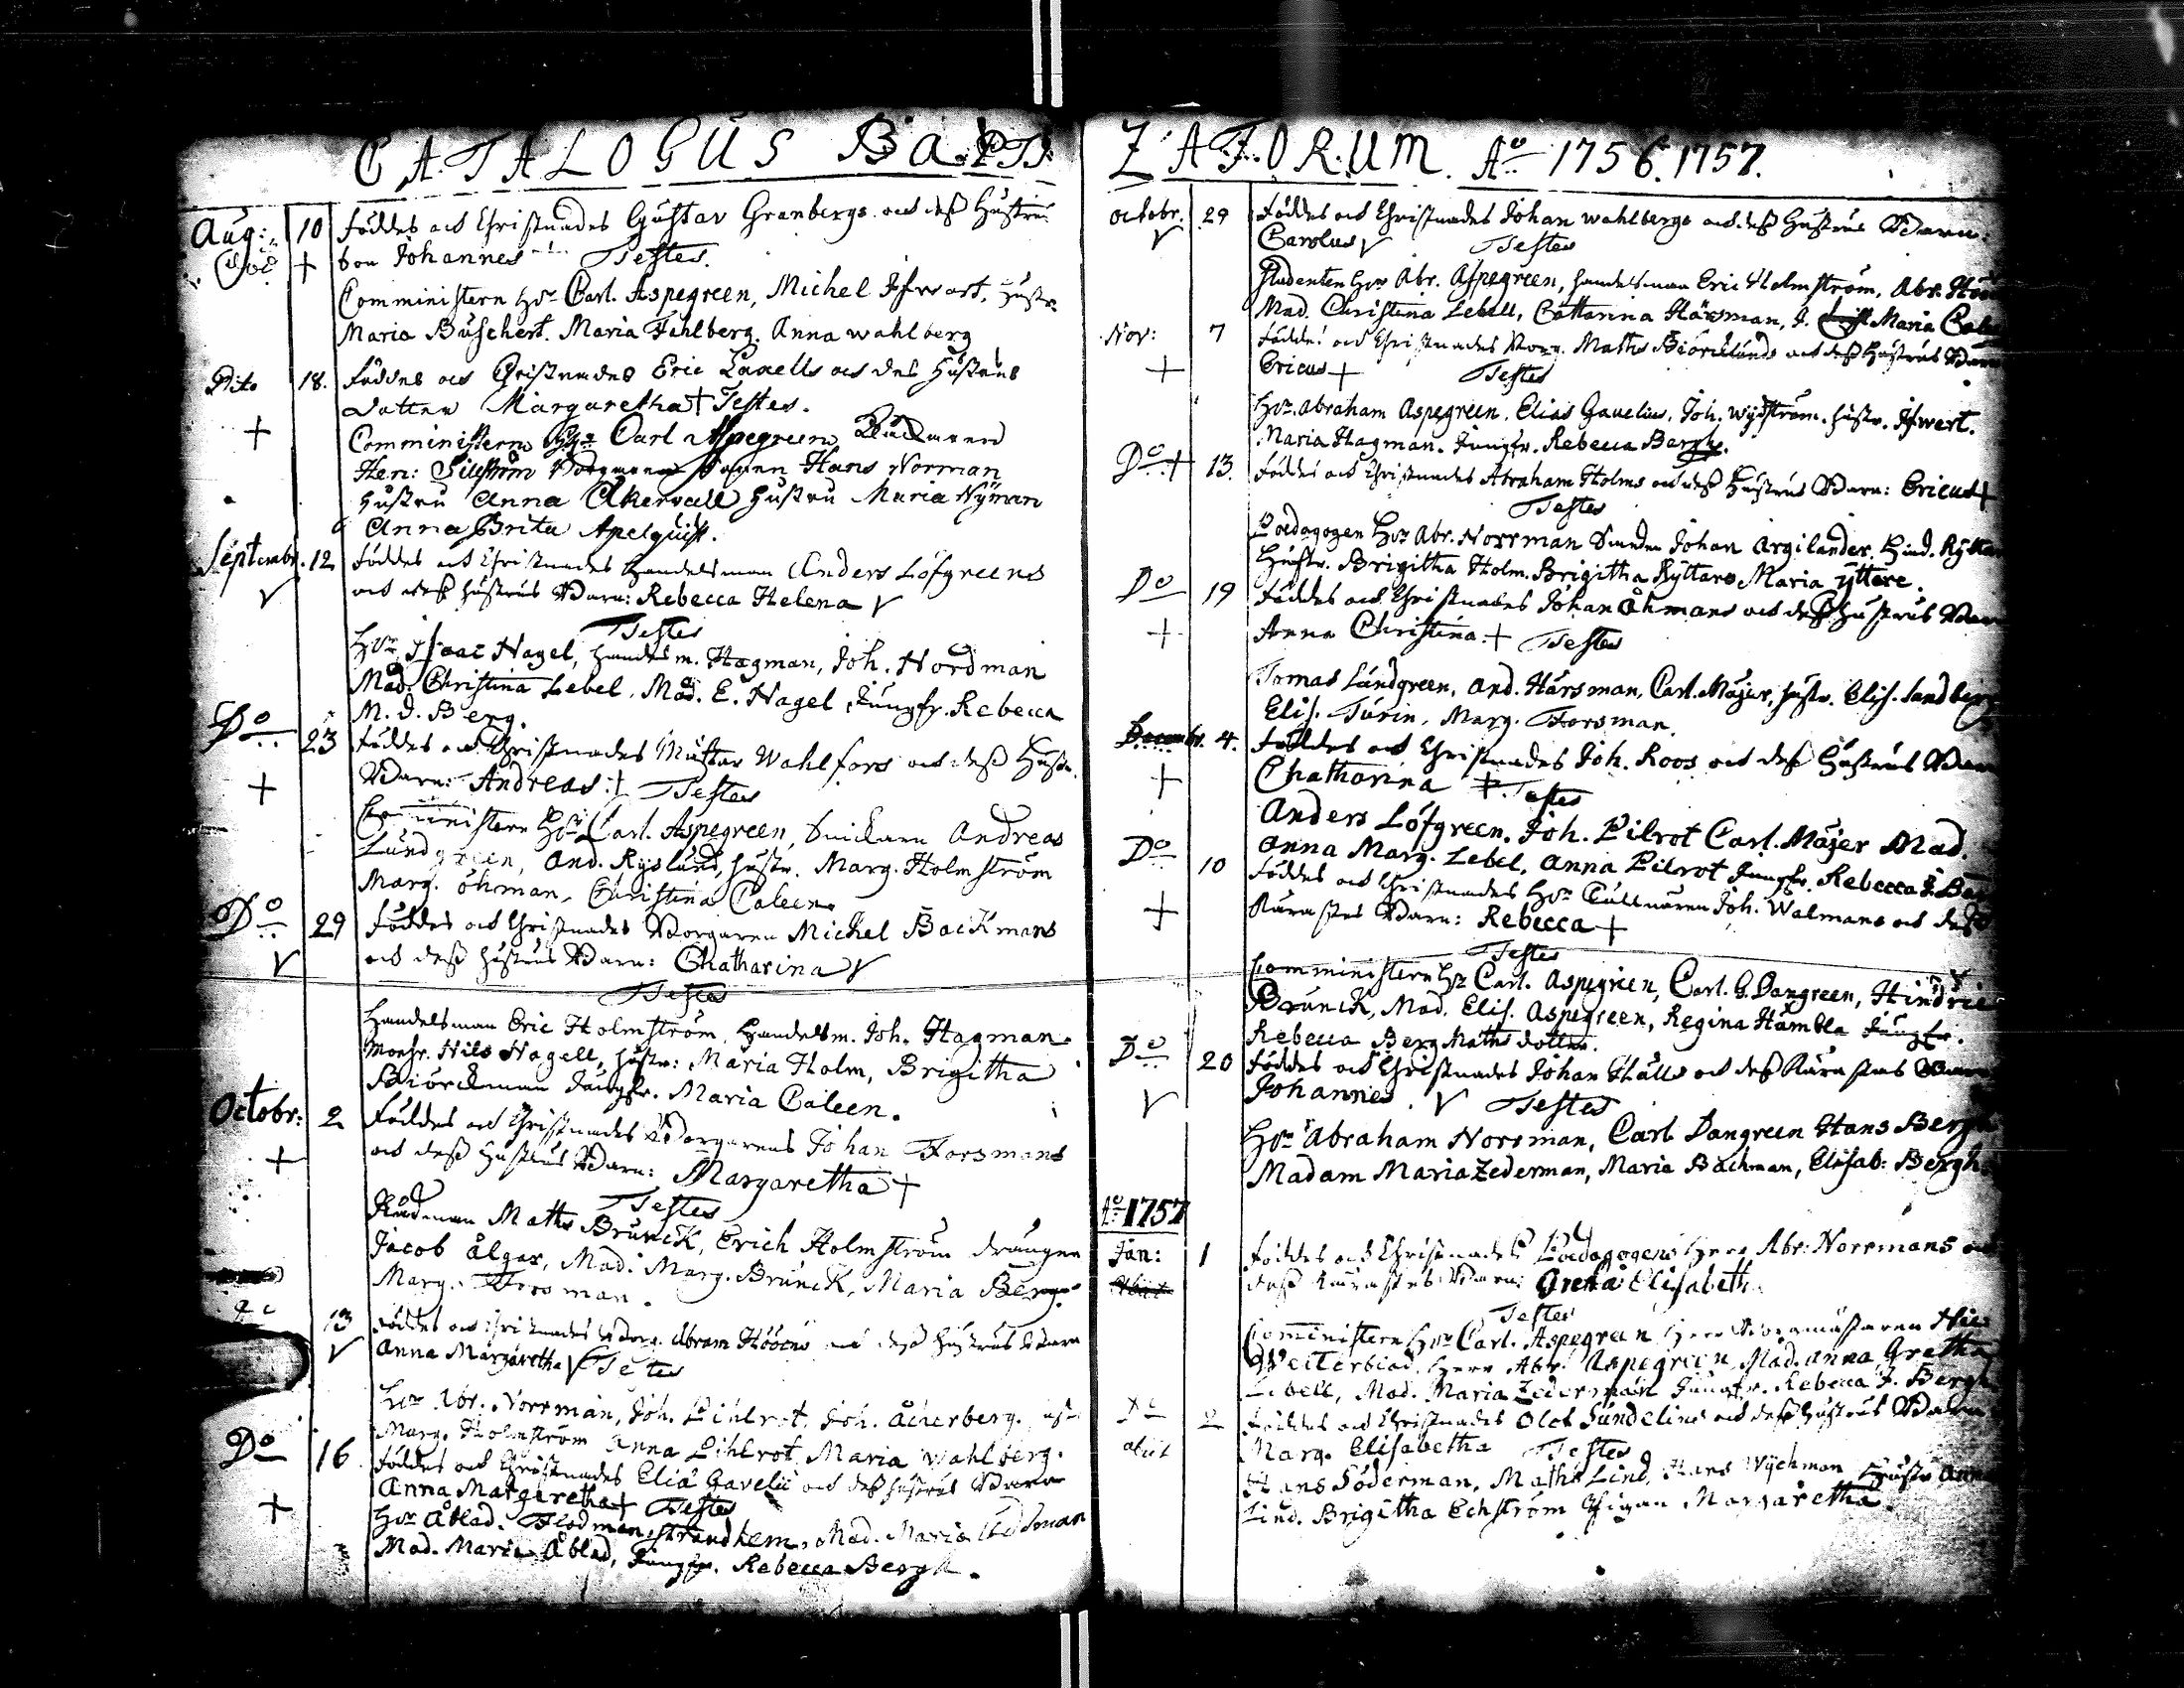 CATALOGUS BAPTI
Aug: 10 Föddes och Christnades Gustav Granbergs och dess Hustrus
+ son Johannes Testes.
Comministern Hr Carl. Aspegreen, Michel Ifwart, Hustr.
Maria Buschert. Maria Fahlberg. Anna Wahlberg
Dito 18. Föddes och Christnades Eric Lanells och des Hustrus
dotter Margaretha + Testes.
+ Comministern Hr Carl Aspegreen
Hen: Sillström Hans Norman
Hustru Anna Åkerwall Hustru Maria Nyman
Anna Brita Apelquist.
Septembr. 12 Föddes och Christnades Handelsman Anders Löfgreens
V och dess hustrus Barn: Rebecca Helena V
Testes
Hr Isaac Nagel, Handelsm. Hagman, Joh. Nordman
Mad. Christina Lebel, Mad. E. Nagel, Jungfr. Rebecca
M. d. Berg.
Do 23 Föddes och Christnades Wahlfors och dess Hustr.
+ Barn: Andreas + Testes
Comministern Hr Carl. Aspegreen, Andreas
Lundgreen, And. Ryslund, Hustr. Marg. Holmström
Marg. Öhman, Christina Caleen.
Do 29 Föddes och Christnades Borgaren Michel Backmans
V och dess hustrus Barn: Chatharina V
Testes
Handelsman Eric Holmström, Handelsm. Joh. Hagman.
Monsr. Nils Nagell, Hustr: Maria Holm, Brigitha
Biörckman Jungfr. Maria Caleen.
Octobr: 2 Föddes och Christnades Borgarens Johan Forsmans
+ och dess Hustrus Barn: Margaretha +
Testes
Rådman Matts Brunck, Erich Holmström drängen
Jacob Älgar, Mad. Marg. Brunck, Maria Berg.
Marg. Forsman.
13 Föddes och Christnades Borg. Abram Hööens och dess hustrus Barn
V Anna Margaretha V Testes
Hr Abr. Norrman, Joh. Pihlrot, Joh. Åkerberg.
Marg. Holmström Anna Pihlrot, Maria Wahlberg.
Do 16 Föddes och Christnades Eliä Gavelii och dess hustrus Barn
+ Anna Margaretha + Testes
Hr Åblad. Flodman, Strandhem, Mad. Maria
Mad. Maria Åblad, Jungfr. Rebecca Bergh.
ZATORUM. Ao 1756. 1757.
Octobr. 29 Föddes och Christnades Johan Wahlbergs och dess Hustrus Barn:
V Carolus V Testes
Studenten Hr Abr. Aspegreen, Handelsman Eric Holmström, Abr.
Mad. Christina Lebell, Cattarina Härsman, J. Maria
Nov: 7 Föddes och Christnades Borg. Matts Biörcklunds och dess Hustrus Barn
+ Ericus + Testes
Hr Abraham Aspegreen, Elias Gavelius, Joh. Wydström. hustr. Ifwert.
Maria Hagman. Jungfr. Rebecca Bergh.
Do + 13. Föddes och Christnades Abraham Holms och dess Hustrus Barn: Ericus +
Testes
Pædagogen Hr Abr. Norrman Johan Argilander. Hind.
Hustr. Brigitha Holm. Brigitha Ryttare Maria yttere.
Do 19 Föddes och Christnades Johan Öhmans och dess Hustrus Barn
+ Anna Christina + Testes
Tomas Lundgreen, And. Härsman, Carl. Majer, hustr. Elis. Sandberg
Elis. Turin, Marg. Forsman.
Decembr. 4. Föddes och Christnades Joh. Roos och dess Hustrus Barn
+ Chatharina + Testes
Anders Löfgreen, Joh. Pilrot Carl. Majer Mad.
Anna Marg. Lebel, Anna Pilrot Jungfr. Rebecca
Do 10 Föddes och Christnades Hr Joh. Walmans och dess
+ Kärastes Barn: Rebecca +
Testes
Comministern Hr Carl. Aspegreen, Carl. G. Dangreen,
Brunck, Mad. Elis. Aspegreen, Regina Hambla Jungfr.
Rebecca Berg Matts dotter.
Do 20 Föddes och Christnades Johan och dess Kärastes Barn
V Johannes V Testes
Hr Abraham Norrman, Carl Dangreen Hans Bergh
Madam Maria Zederman, Maria Bachman, Elisab: Bergh.
Ao 1757
Jan: 1 Föddes och Christnades Pædagogens Herr Abr: Norrmans och
dess Kärastes Barn: Greta Elisabeth.
Testes
Comministern Hr Carl. Aspegreen Herr Borgmästaren
Weiterblad, Herr Abr. Aspegreen, Mad. Anna Gretha
Lebell, Mad. Maria Zederman Jungfr. Rebecca J. Bergh
Do 2 Föddes och Christnades Olof Sundelins och dess Hustrus Barn
Marg. Elisabetha Testes
Hans Söderman, Matts Lind, Hans Wychman Hustr Anna
Lind. Brigitha Echström Pigan Margaretha.